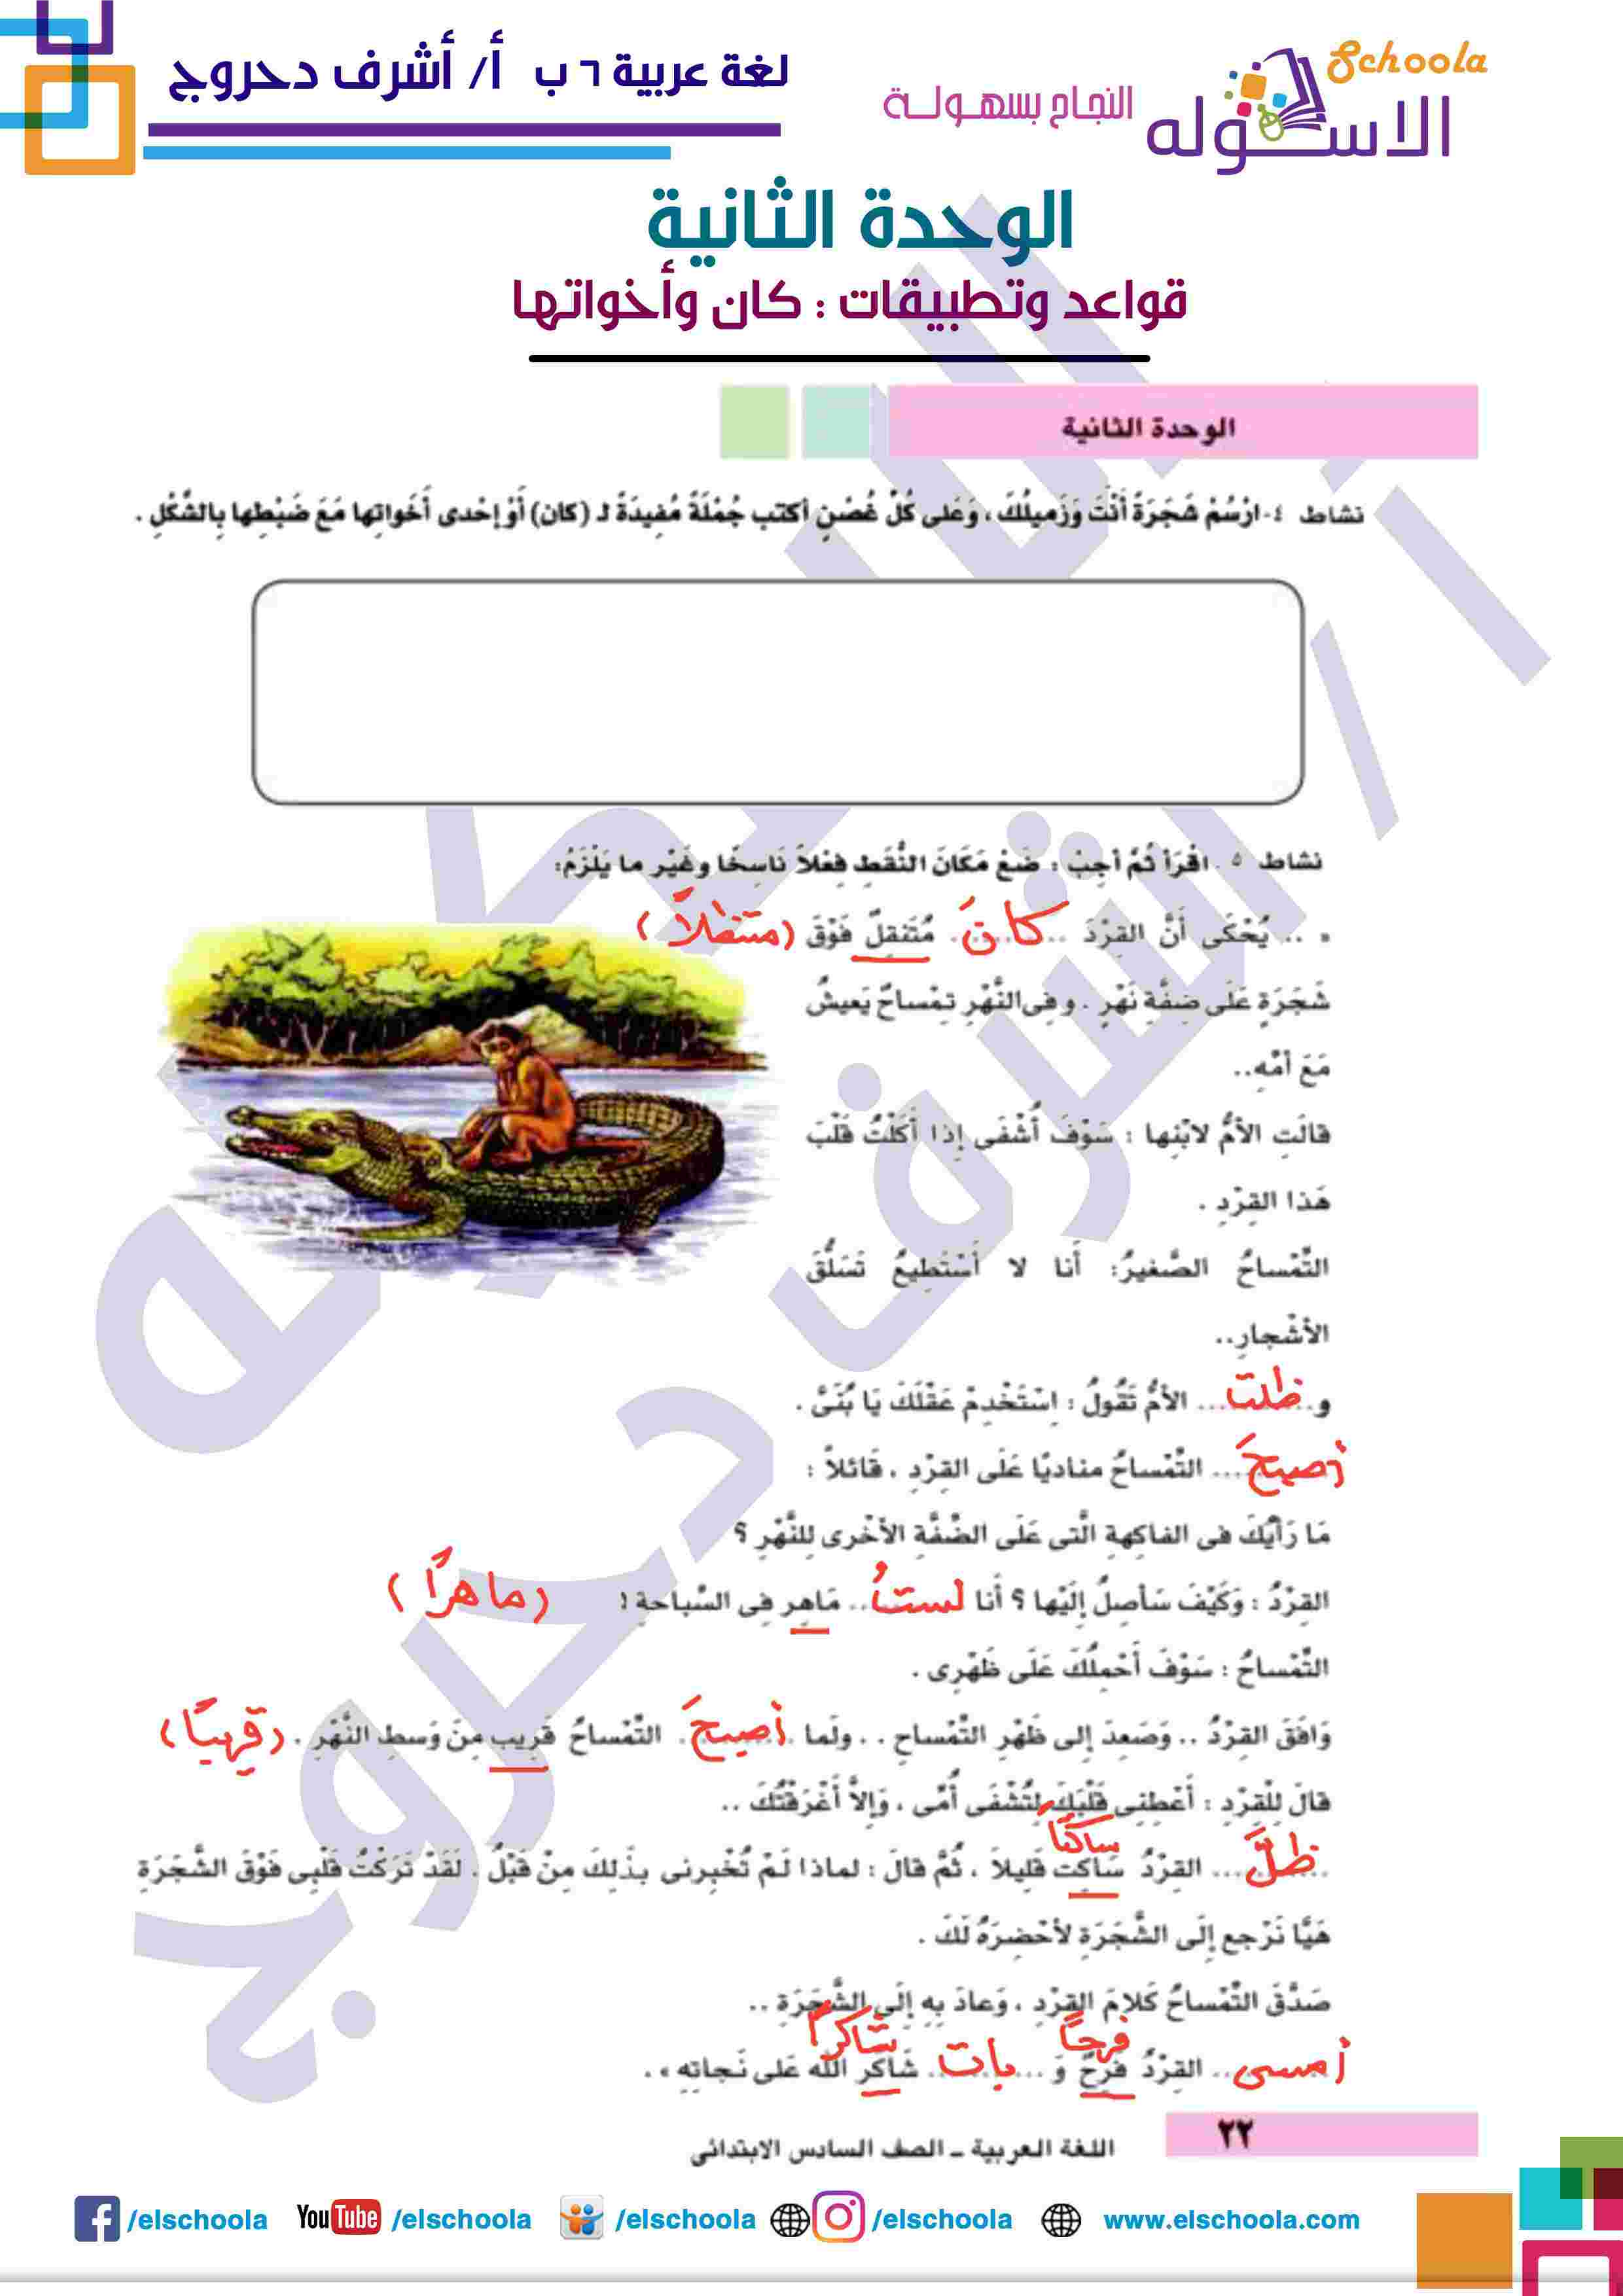 Schoola
الاسكوله
النجاح بسهولة
لغة عربية ٦ ب أ/ أشرف دحروج
الوحدة الثانية
قواعد وتطبيقات : كان وأخواتها
الوحدة الثانية
نشاط ٤- ارْسُمْ شَجَرَةً أَنْتَ وَزَمِيلُكَ ، وَعَلى كُلِّ غُصْنٍ اكتب جُمْلَةً مُفِيدَةً لـ (كان) أَوْ إحْدى أَخَواتِها مَعَ ضَبْطِها بِالشَّكْلِ .
نشاط ٥ . اقْرَأ ثُمَّ أجِبْ : ضَعْ مَكَانَ النُّقَطِ فِعْلاً نَاسِخًا وغَيْر ما يَلْزَمُ:
« .. يُحْكَى أَنَّ القِرْدَ .. كانَ .. مُتَنقِلٌ فَوْقَ (متنقلاً)
شَجَرَةٍ عَلَى ضِفَّةِ نَهْرٍ . وفِى النَّهْرِ تِمْساحٌ يَعيشُ
مَعَ أمِّهِ..
قالَتِ الأمُّ لابْنِها : سَوْفَ أُشْفَى إذا أَكَلْتُ قَلْبَ
هَذا القِرْدِ .
التِّمْساحُ الصَّغيرُ: أَنا لا أَسْتَطِيعُ تَسَلُّقَ
الأشْجارِ..
و.. ظلت ... الأمُّ تَقُولُ : اِسْتَخْدِمْ عَقْلَكَ يَا بُنَىَّ .
أصبحَ ... التِّمْساحُ مناديًا عَلَى القِرْدِ ، قَائلاً :
مَا رَأيُكَ فى الفاكِهةِ الَّتى عَلَى الضِّفَّةِ الأخْرى لِلنَّهْرِ ؟
القِرْدُ : وَكَيْفَ سَأصِلُ إلَيْها ؟ أَنا لستُ .. مَاهِر فِى السِّباحةِ ! (ماهرًا)
التِّمْساحُ : سَوْفَ أَحْمِلُكَ عَلَى ظَهْرِى .
وَافَقَ القِرْدُ .. وَصَعِدَ إلى ظَهْرِ التِّمْساحِ .. ولَما .. أصبحَ .. التِّمْساحُ قَرِيب مِنْ وَسطِ النَّهْرِ . (قريبًا)
قالَ لِلْقِرْدِ : أَعْطِنِى قَلْبَكَ لِتُشْفَى أُمِّى ، وَإِلاَّ أَغْرَقْتُكَ ..
ساكتًا
ظلَّ ... القِرْدُ سَاكِت قَلِيلاً ، ثُمَّ قالَ : لماذا لَمْ تُخْبِرنى بِذَلِكَ مِنْ قَبْلُ . لَقَدْ تَرَكْتُ قَلْبِى فَوْقَ الشَّجَرَةِ
هَيَّا نَرْجِع إلَى الشَّجَرَةِ لأحْضِرَهُ لَكَ .
صَدَّقَ التِّمْساحُ كَلامَ القِرْدِ ، وَعادَ بِهِ إلَى الشَّجَرَةِ ..
فرحًا شاكرًا
أمسى .. القِرْدُ فَرِحٌ وَ ... بات .. شَاكر اللّه عَلى نَجاتِهِ » .
٢٢
اللغة العربية ــ الصف السادس الابتدائى
/elschoola
YouTube /elschoola
/elschoola
/elschoola
www.elschoola.com